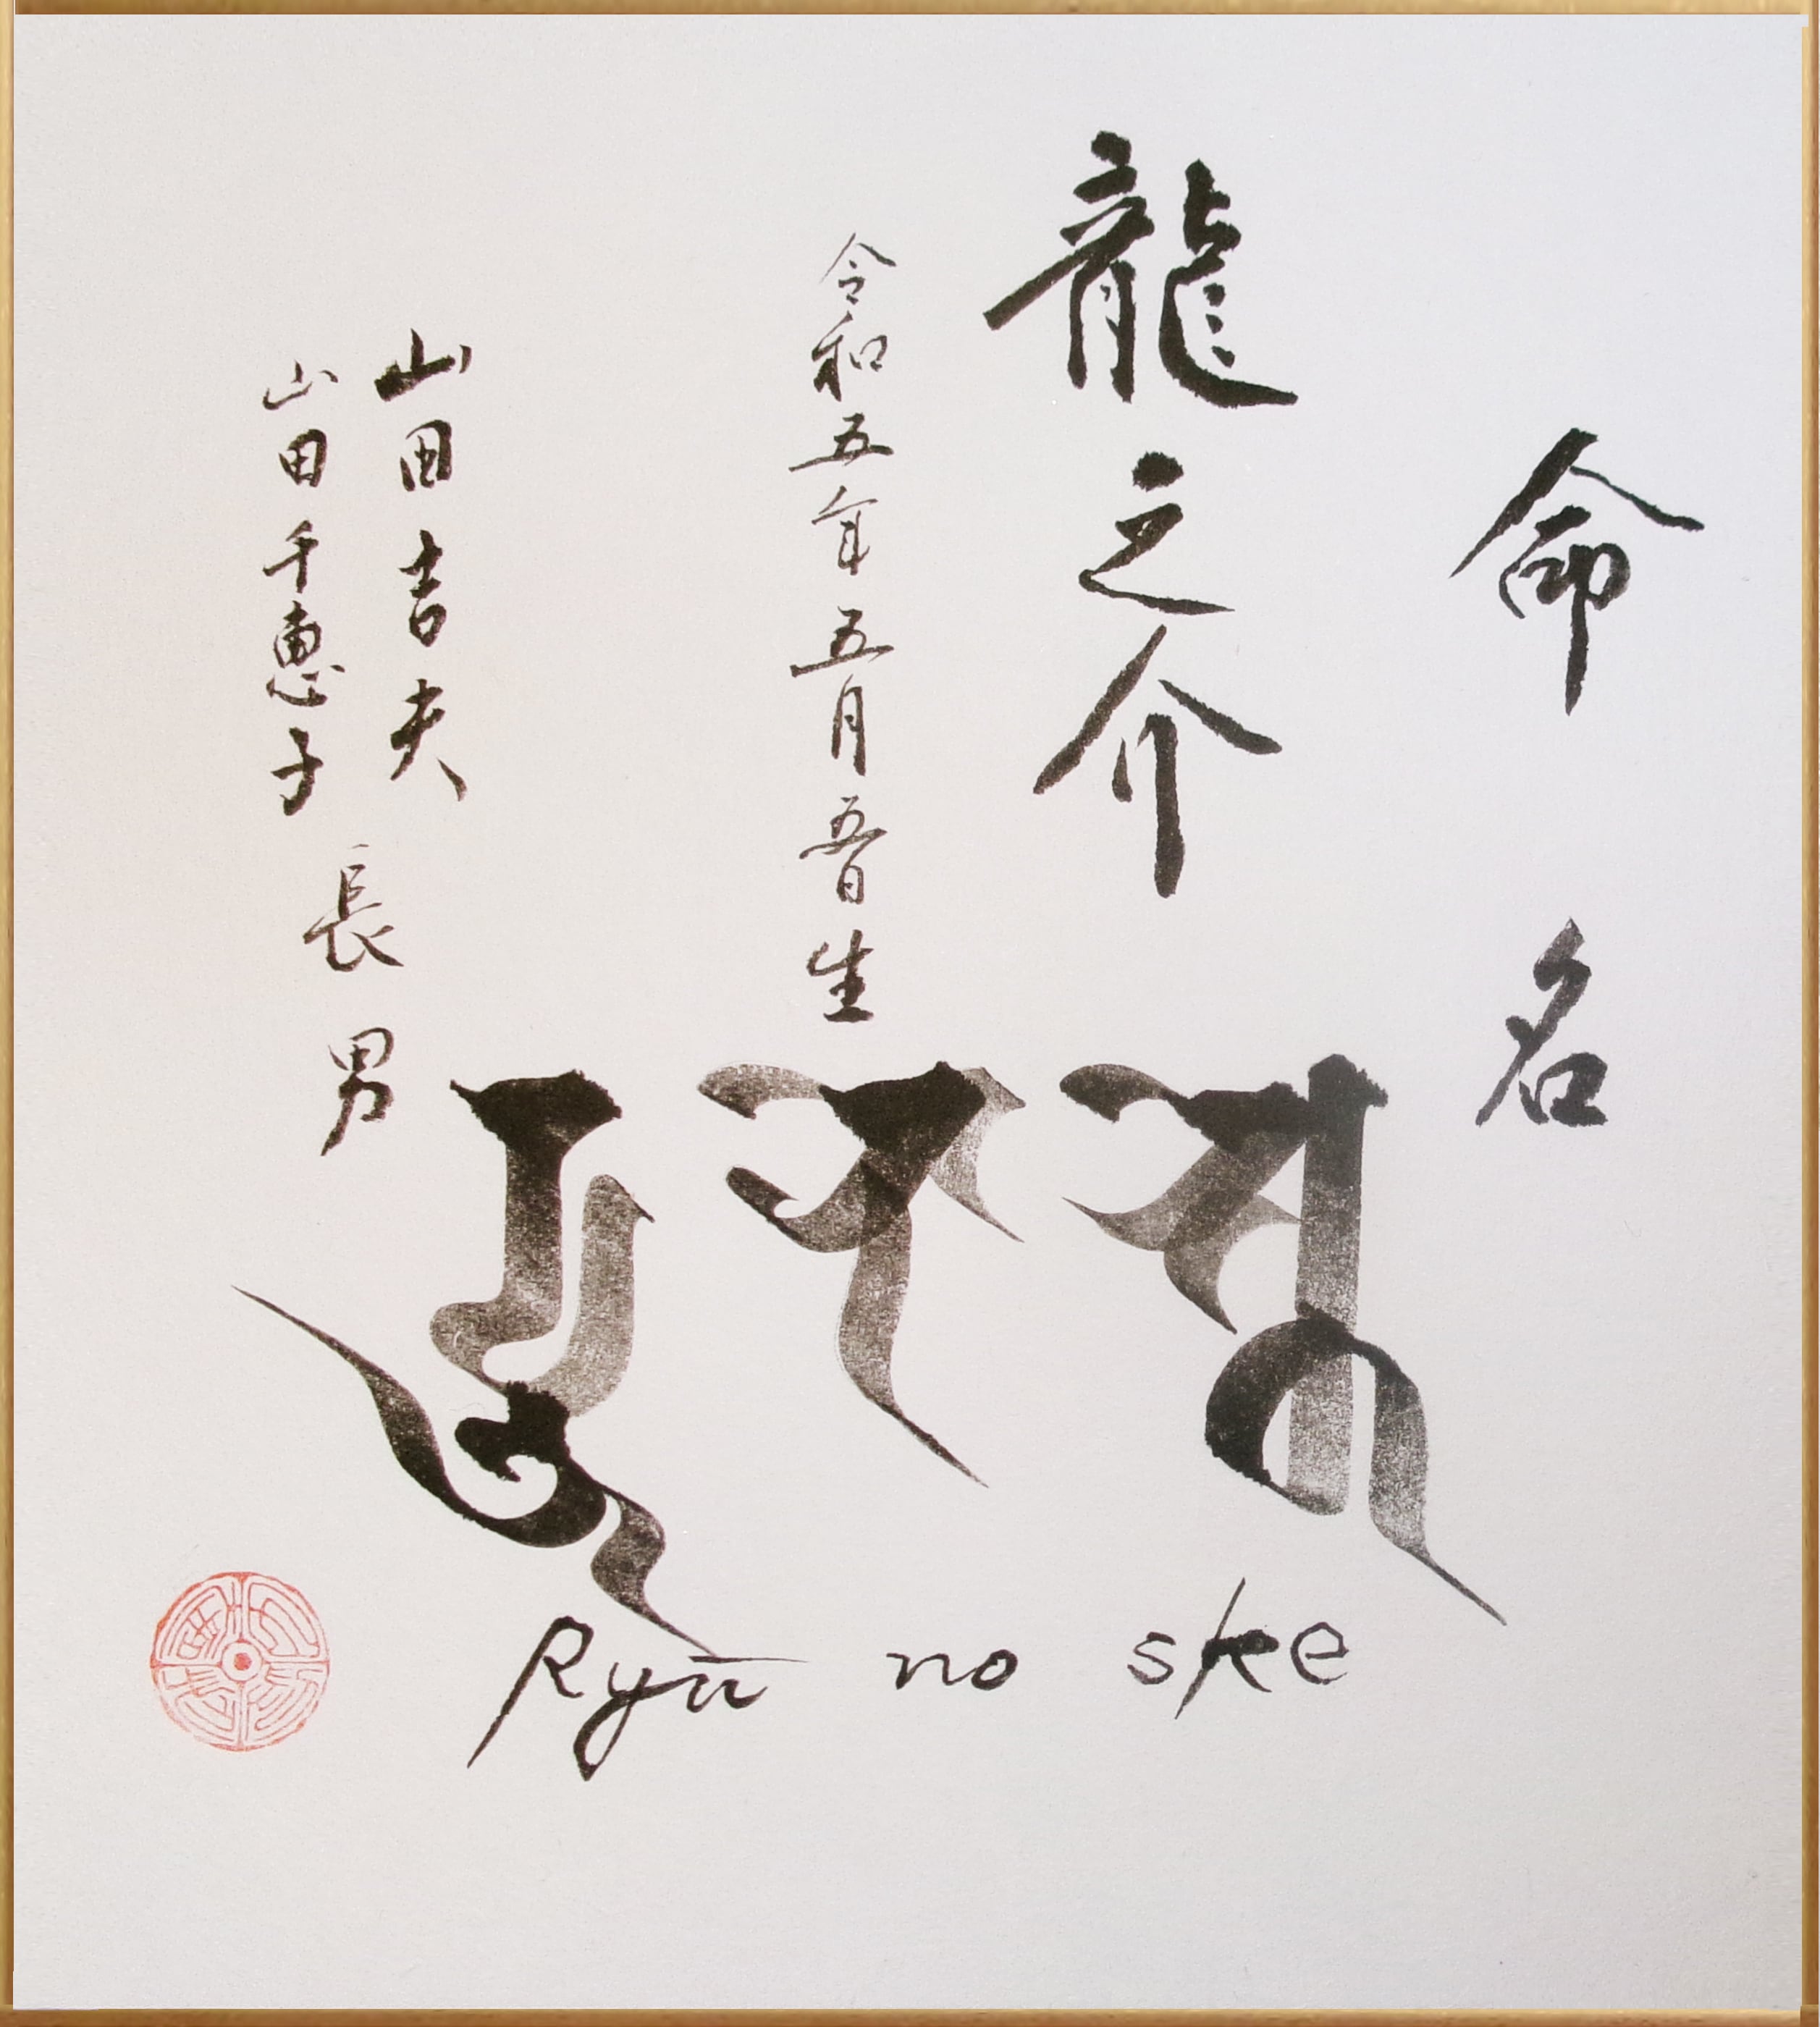 命名
龍之介
令和五年五月五日生
山田吉夫
山田千恵子
長男
Ryū no ske